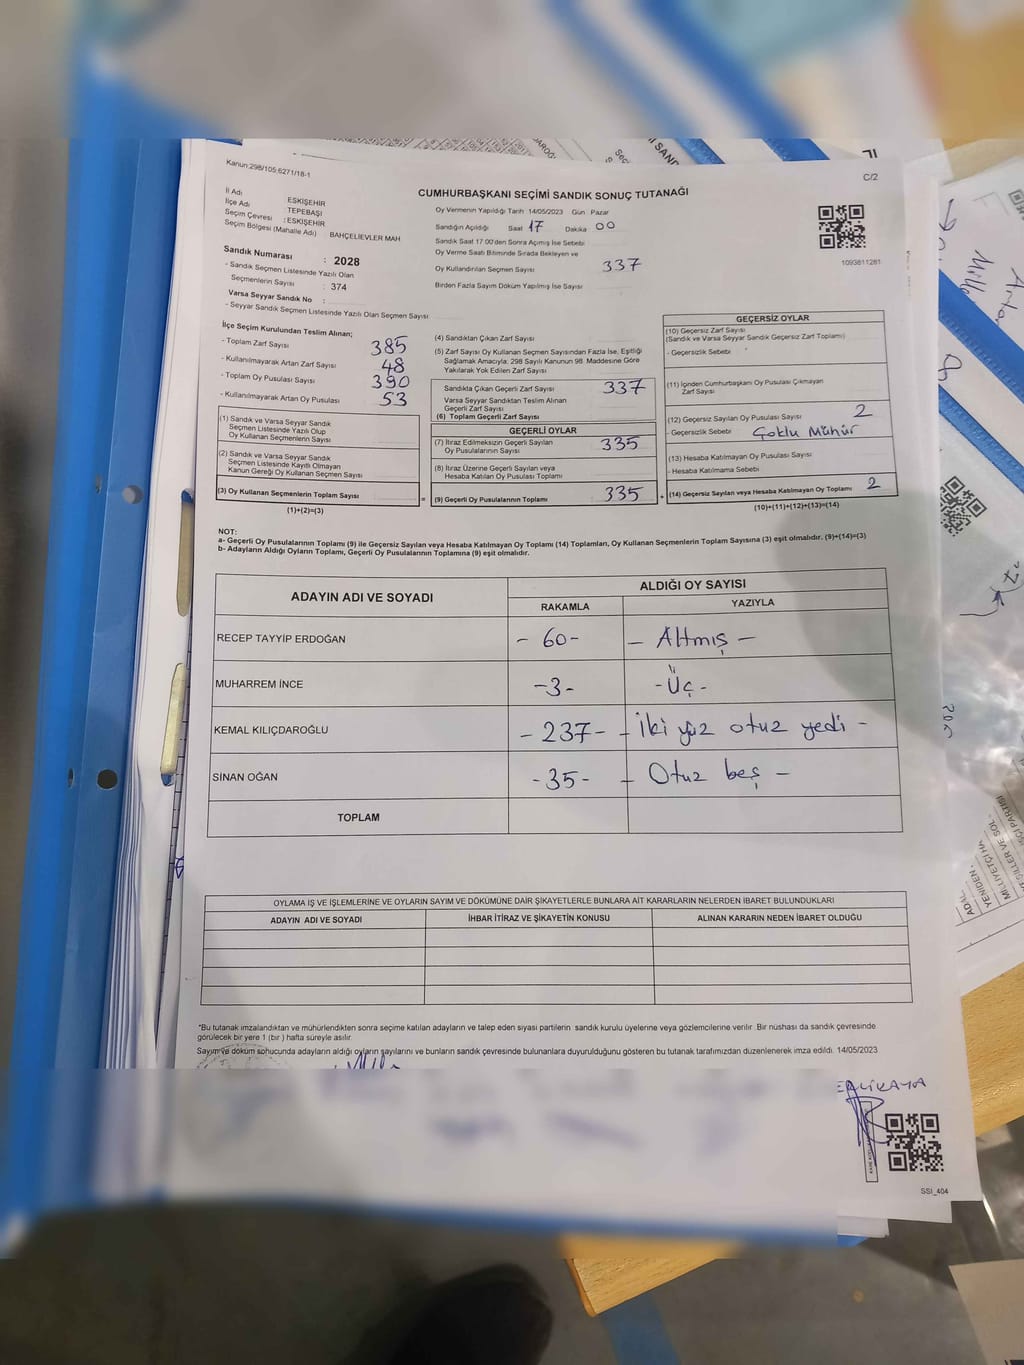 Kanun:298/105,6271/18-1
C/2
CUMHURBAŞKANI SEÇİMİ SANDIK SONUÇ TUTANAĞI
İl Adı : ESKİŞEHİR
İlçe Adı : TEPEBAŞI
Seçim Çevresi : ESKİŞEHİR
Seçim Bölgesi (Mahalle Adı) BAHÇELİEVLER MAH
Oy Vermenin Yapıldığı Tarih 14/05/2023 Gün Pazar
Sandığın Açıldığı Saat 17 Dakika 00
Sandık Saat 17.00'den Sonra Açımış İse Sebebi
Oy Verme Saati Bitiminde Sırada Bekleyen ve
Oy Kullandırılan Seçmen Sayısı 337
Birden Fazla Sayım Döküm Yapılmış İse Sayısı
1093811281
Sandık Numarası : 2028
- Sandık Seçmen Listesinde Yazılı Olan
Seçmenlerin Sayısı : 374
Varsa Seyyar Sandık No :
- Seyyar Sandık Seçmen Listesinde Yazılı Olan Seçmen Sayısı
İlçe Seçim Kurulundan Teslim Alınan;
- Toplam Zarf Sayısı 385
- Kullanılmayarak Artan Zarf Sayısı 48
- Toplam Oy Pusulası Sayısı 390
- Kullanılmayarak Artan Oy Pusulası 53
(1) Sandık ve Varsa Seyyar Sandık
Seçmen Listesinde Yazılı Olup
Oy Kullanan Seçmenlerin Sayısı
(2) Sandık ve Varsa Seyyar Sandık
Seçmen Listesinde Kayıtlı Olmayan
Kanun Gereği Oy Kullanan Seçmen Sayısı
(3) Oy Kullanan Seçmenlerin Toplam Sayısı =
(1)+(2)=(3)
(4) Sandıktan Çıkan Zarf Sayısı
(5) Zarf Sayısı Oy Kullanan Seçmen Sayısından Fazla İse, Eşitliği
Sağlamak Amacıyla; 298 Sayılı Kanunun 98. Maddesine Göre
Yakılarak Yok Edilen Zarf Sayısı
Sandıkta Çıkan Geçerli Zarf Sayısı 337
Varsa Seyyar Sandıktan Teslim Alınan
Geçerli Zarf Sayısı
(6) Toplam Geçerli Zarf Sayısı
GEÇERLİ OYLAR
(7) İtiraz Edilmeksizin Geçerli Sayılan
Oy Pusulalarının Sayısı 335
(8) İtiraz Üzerine Geçerli Sayılan veya
Hesaba Katılan Oy Pusulası Toplamı
(9) Geçerli Oy Pusulalarının Toplamı 335 +
GEÇERSİZ OYLAR
(10) Geçersiz Zarf Sayısı
(Sandık ve Varsa Seyyar Sandık Geçersiz Zarf Toplamı)
- Geçersizlik Sebebi
(11) İçinden Cumhurbaşkanı Oy Pusulası Çıkmayan
Zarf Sayısı
(12) Geçersiz Sayılan Oy Pusulası Sayısı 2
- Geçersizlik Sebebi Çoklu Mühür
(13) Hesaba Katılmayan Oy Pusulası Sayısı
- Hesaba Katılmama Sebebi
(14) Geçersiz Sayılan veya Hesaba Katılmayan Oy Toplamı 2
(10)+(11)+(12)+(13)=(14)
NOT:
a- Geçerli Oy Pusulalarının Toplamı (9) ile Geçersiz Sayılan veya Hesaba Katılmayan Oy Toplamı (14) Toplamları, Oy Kullanan Seçmenlerin Toplam Sayısına (3) eşit olmalıdır. (9)+(14)=(3)
b- Adayların Aldığı Oyların Toplamı, Geçerli Oy Pusulalarının Toplamına (9) eşit olmalıdır.
ADAYIN ADI VE SOYADI
ALDIĞI OY SAYISI
RAKAMLA YAZIYLA
RECEP TAYYİP ERDOĞAN - 60 - - Altmış -
MUHARREM İNCE -3- - Üç -
KEMAL KILIÇDAROĞLU - 237 - - İki yüz otuz yedi -
SİNAN OĞAN -35- - Otuz beş -
TOPLAM
OYLAMA İŞ VE İŞLEMLERİNE VE OYLARIN SAYIM VE DÖKÜMÜNE DAİR ŞİKAYETLERLE BUNLARA AİT KARARLARIN NELERDEN İBARET BULUNDUKLARI
ADAYIN ADI VE SOYADI İHBAR İTİRAZ VE ŞİKAYETİN KONUSU ALINAN KARARIN NEDEN İBARET OLDUĞU
*Bu tutanak imzalandıktan ve mühürlendikten sonra seçime katılan adayların ve talep eden siyasi partilerin sandık kurulu üyelerine veya gözlemcilerine verilir. Bir nüshası da sandık çevresinde
görülecek bir yere 1 (bir) hafta süreyle asılır.
Sayım ve döküm sonucunda adayların aldığı oyların sayılarını ve bunların sandık çevresinde bulunanlara duyurulduğunu gösteren bu tutanak tarafımızdan düzenlenerek imza edildi. 14/05/2023
SSI_404